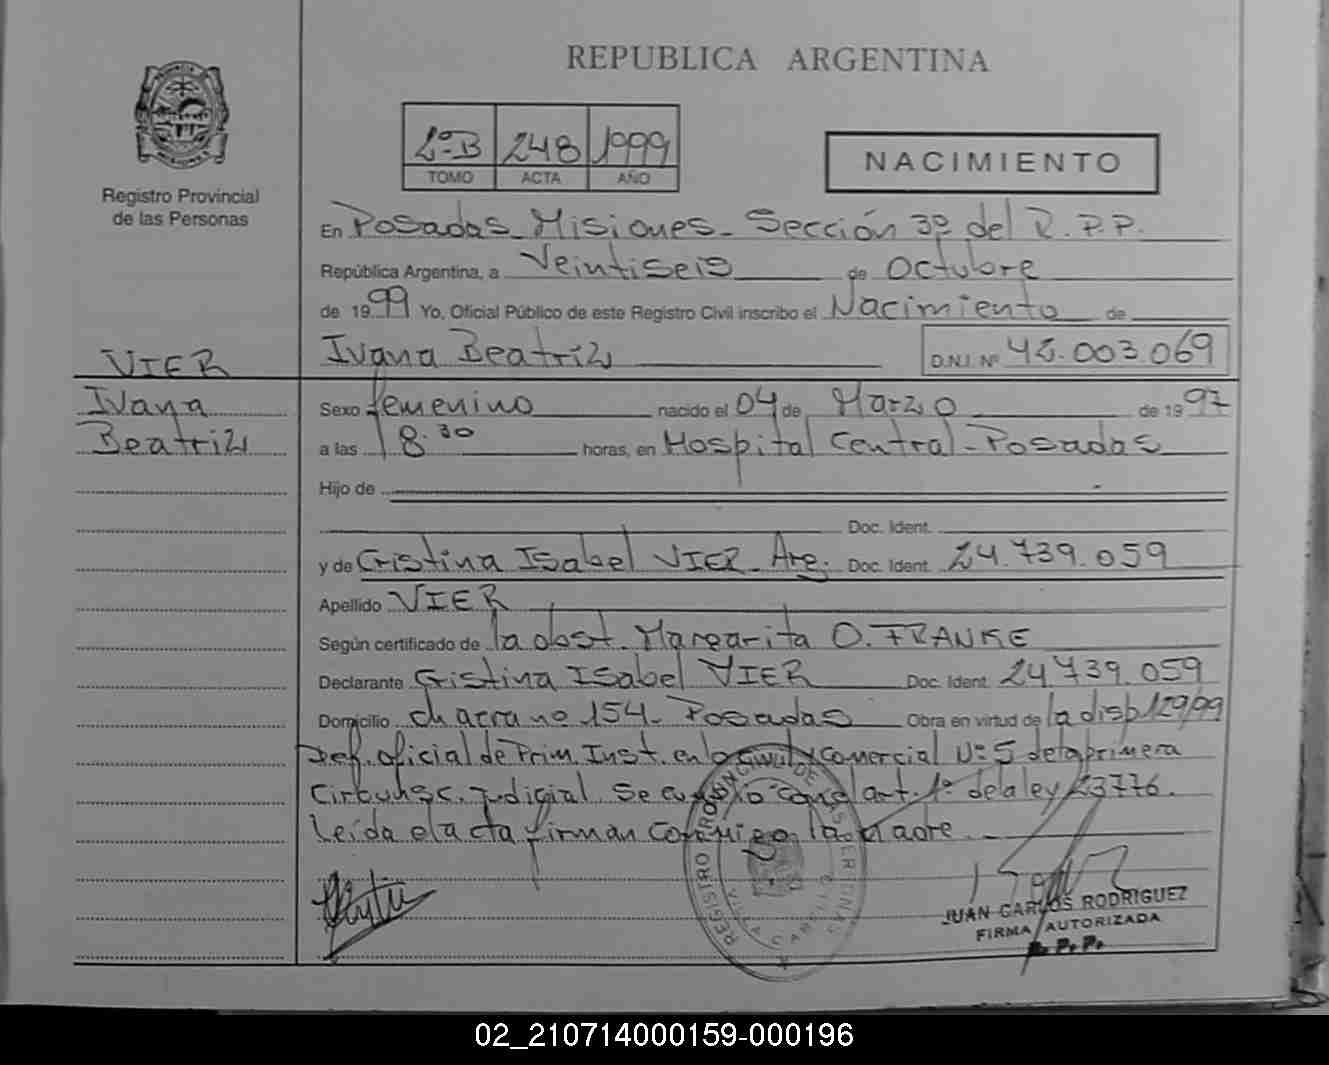 REPUBLICA ARGENTINA
2º-B 248 1999
TOMO ACTA AÑO
NACIMIENTO
Registro Provincial
de las Personas
En Posadas Misiones - Sección 3º del R.P.P.
República Argentina, a Veintiseis de Octubre
de 1999 Yo, Oficial Público de este Registro Civil inscribo el Nacimiento de
Ivana Beatriz D.N.I. Nº 42.003.069
VIER
Ivana
Beatriz
Sexo femenino nacido el 04 de Marzo de 1997
a las 18.30 horas, en Hospital Central - Posadas
Hijo de
Doc. Ident.
y de Cristina Isabel VIER - Arg. Doc. Ident. 24.739.059
Apellido VIER
Según certificado de la obst. Margarita O. FRANKE
Declarante Cristina Isabel VIER Doc. Ident. 24739.059
Domicilio chacra nº 154 - Posadas Obra en virtud de la disp 129/99
Def. oficial de Prim. Inst. en lo civil y comercial Nº 5 de la primera
Circunsc. Judicial. Se cumplio con el art. 1º de la ley 23776.
Leída el acta firman conmigo la madre
REGISTRO PROVINCIAL DE LAS PERSONAS
JUAN CARLOS RODRIGUEZ
FIRMA AUTORIZADA
R. P. P.
02_210714000159-000196